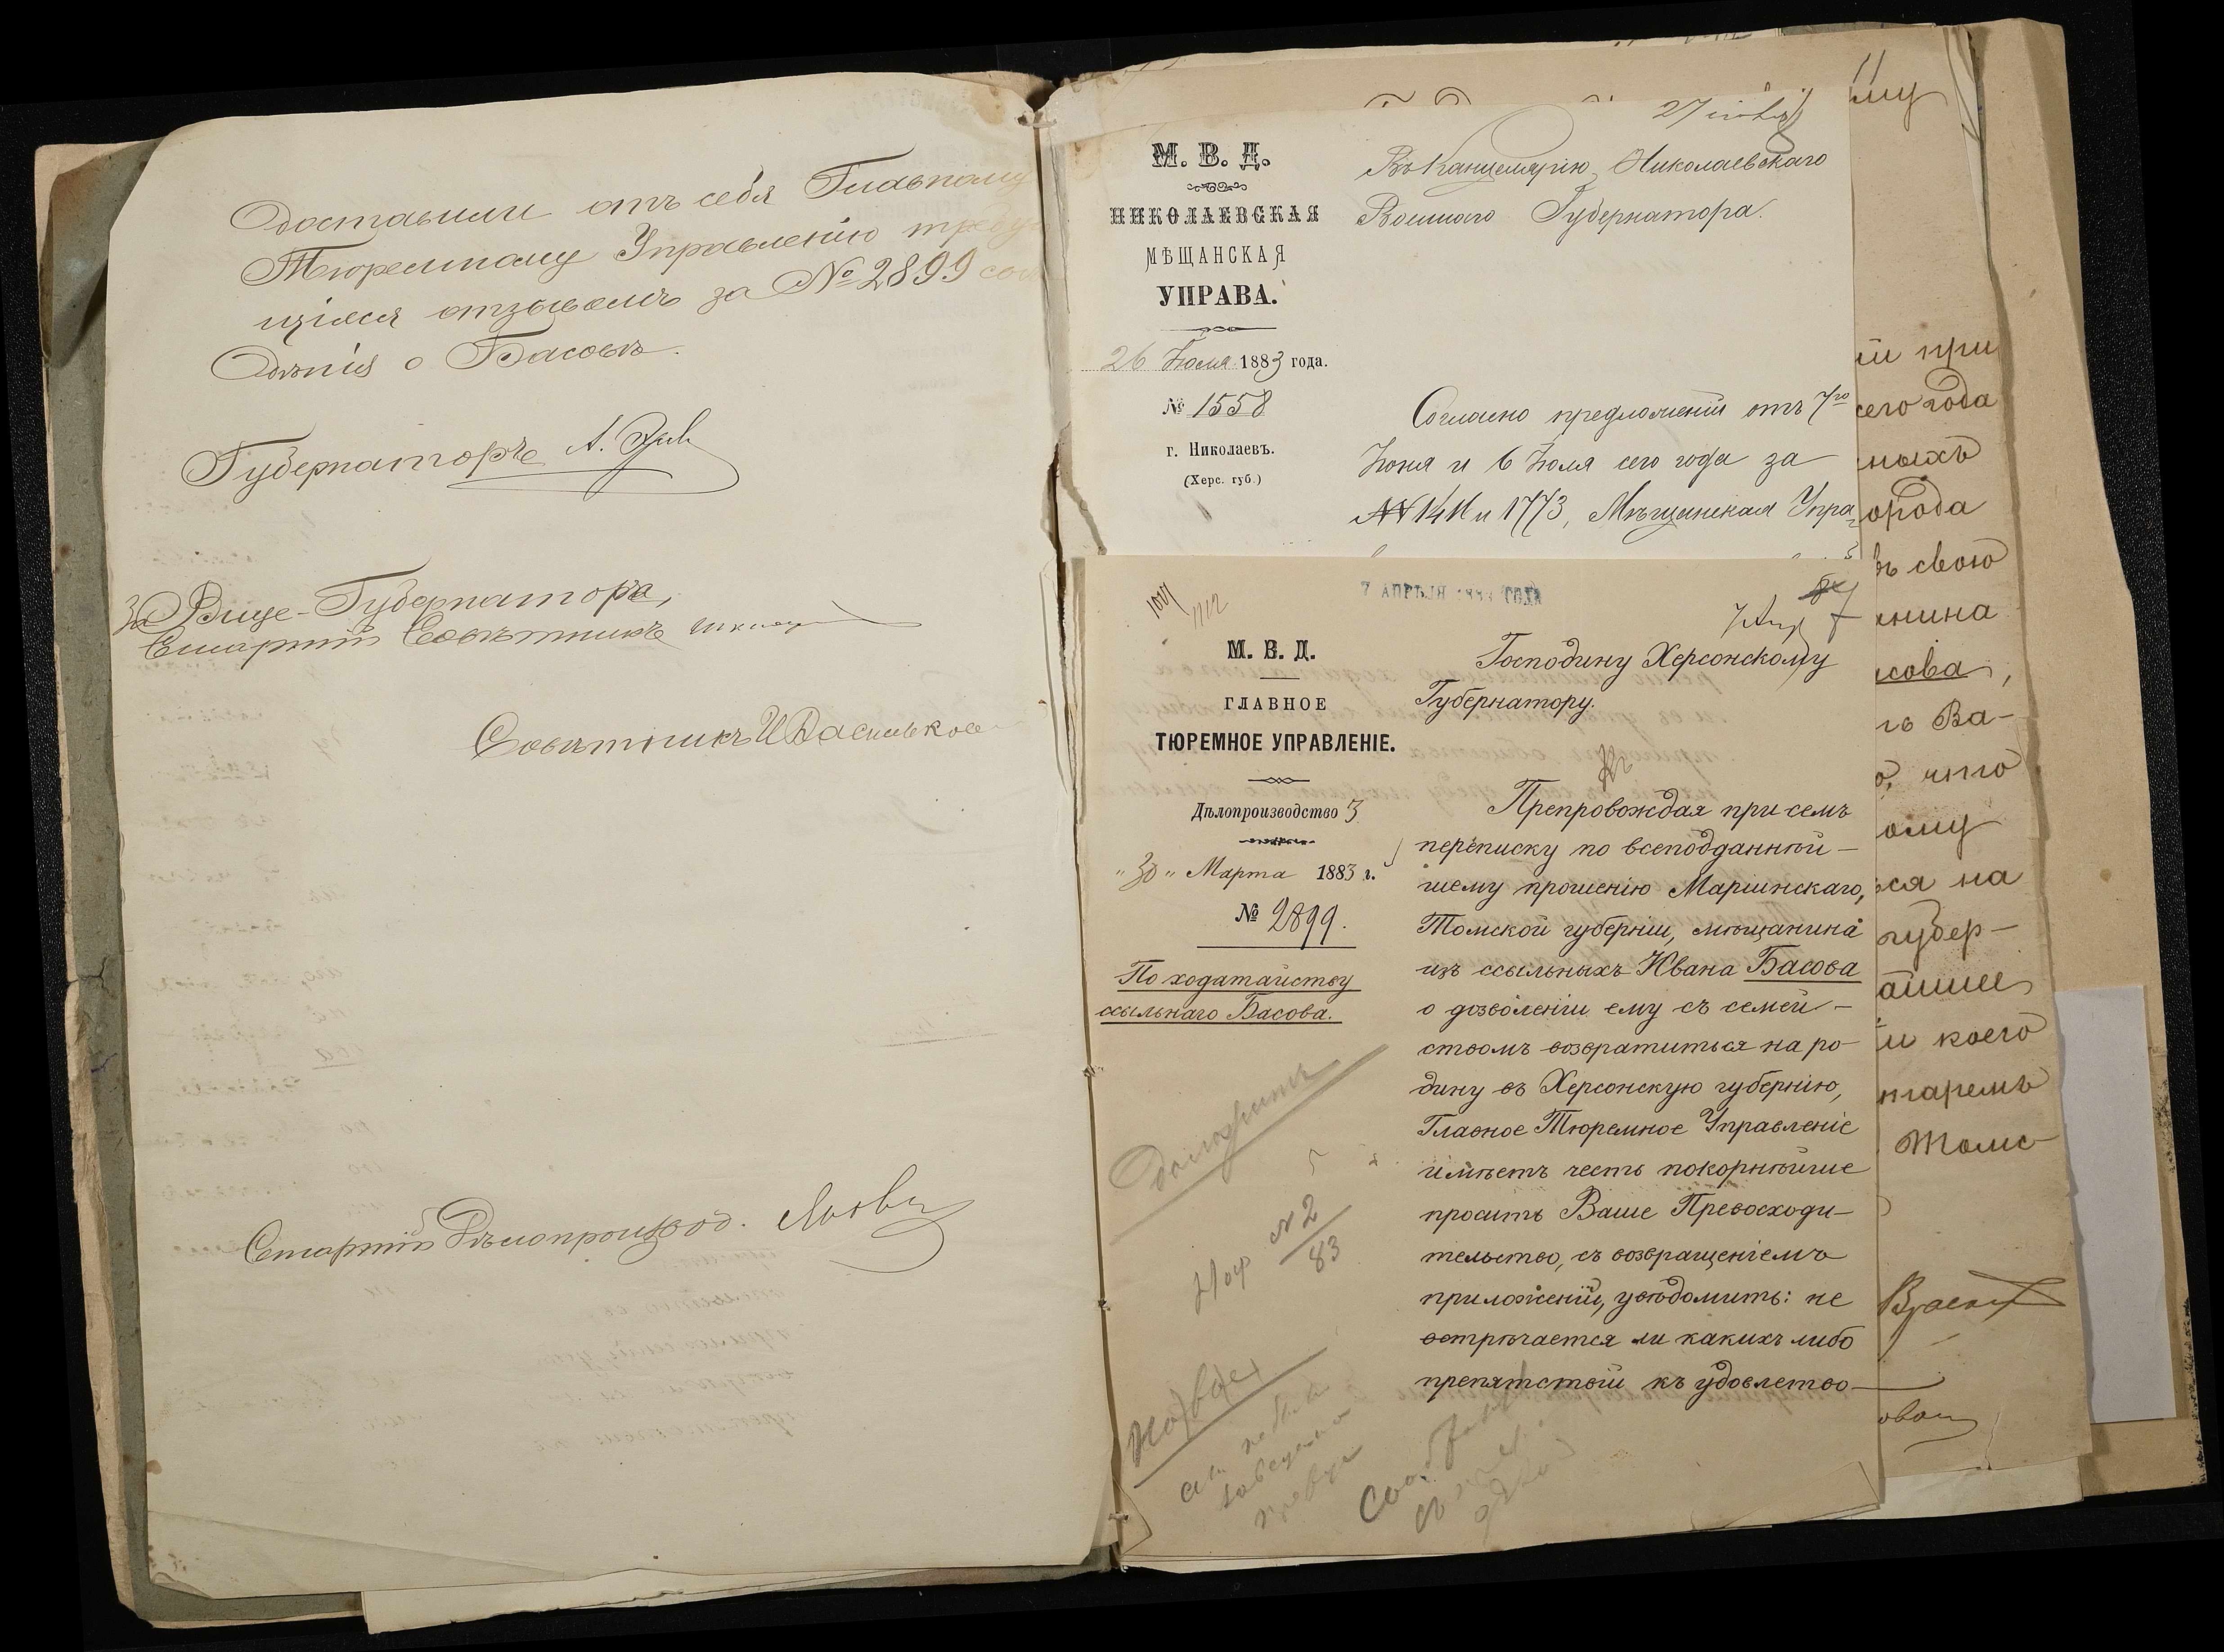 доставили отъ себя Главному
Тюремному Управленію требу
щіяся отзывомъ за № 2899 свѣ
дѣнія о Басовѣ.
Губернаторъ А.
За Вице-Губернатора,
Старшій Совѣтникъ
Совѣтникъ И Васильков
Старшій Дѣлопроизвод.
27 іюля
М. В. Д.
НИКОЛАЕВСКАЯ
МѢЩАНСКАЯ
УПРАВА.
26 Іюля 1883 года.
№ 1558
г. Николаевъ.
(Херс. губ.)
Въ Канцелярію Николаевскаго
Военнаго Губернатора.
Согласно предложеній отъ 7го
Іюня и 6 Іюля сего года за
№№ 1411 и 1773, Мѣщанская Упра-
7 АПРѢЛЯ 1883 ГОДА
М. В. Д.
ГЛАВНОЕ
ТЮРЕМНОЕ УПРАВЛЕНІЕ.
Дѣлопроизводство 3
„30„ Марта 1883 г.
№ 2899.
По ходатайству
ссыльнаго Басова.
Господину Херсонскому
Губернатору.
Препровождая при семъ
переписку по всеподданнѣй-
шему прошенію Маріинскаго,
Томской губерніи, мѣщанина
изъ ссыльныхъ Ивана Басова
о дозволеніи ему съ семей-
ствомъ возвратиться на ро-
дину въ Херсонскую губернію,
Главное Тюремное Управленіе
имѣетъ честь покорнѣйше
просить Ваше Превосходи-
тельство, съ возвращеніемъ
приложеній, увѣдомить: не
встрѣчается ли какихъ либо
препятствій къ удовлетво-
№ 2
83
му
ій при
сего года
ныхъ
орода
ъ свою
нина
сова,
ъ Ва-
что
ому
ся на
губер-
и коего
таремъ
Томс-